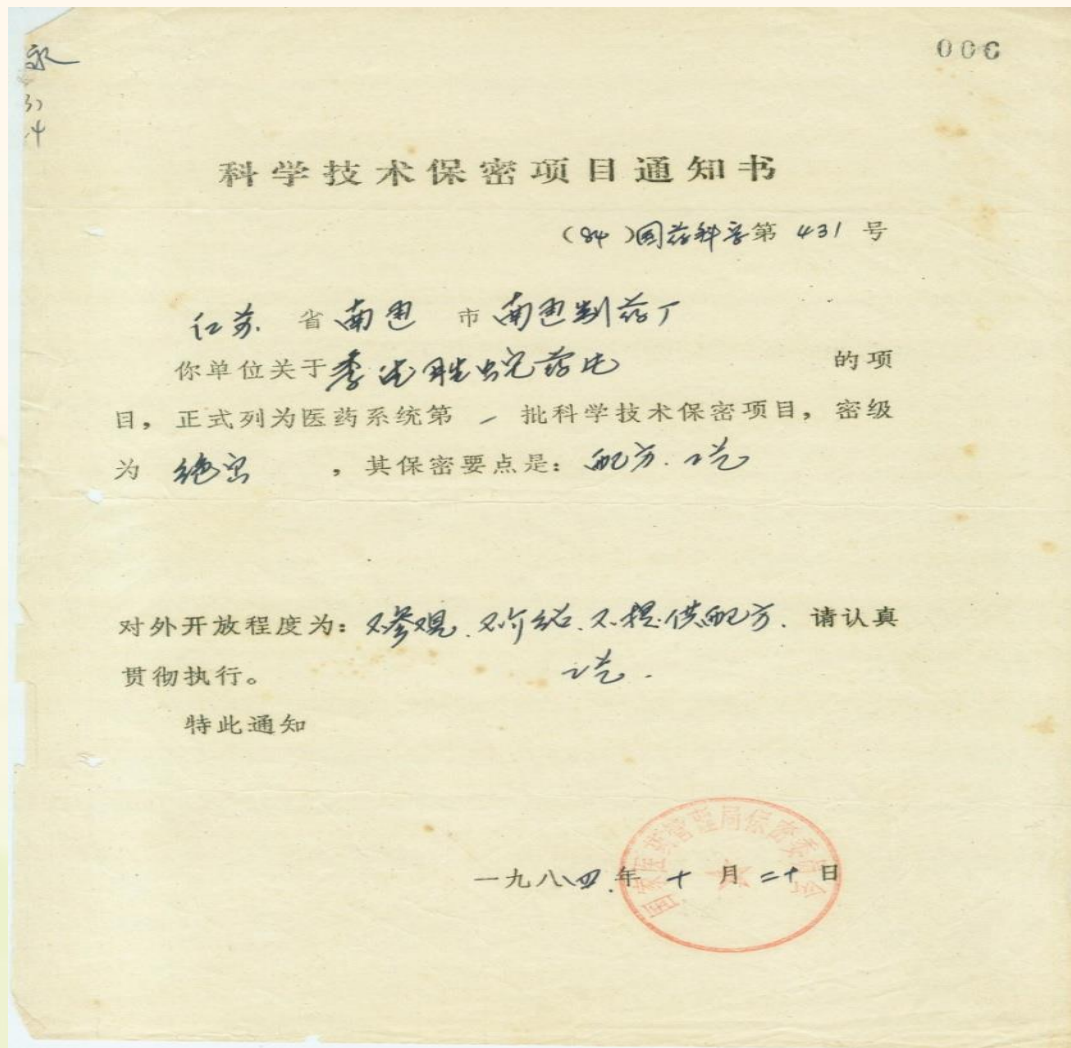 永
006
科学技术保密项目通知书
(84)国药科字第 431 号
江苏 省 南通 市 南通制药厂
你单位关于季德胜蛇药片 的项
目，正式列为医药系统第 一 批科学技术保密项目，密级
为 绝密 ，其保密要点是：配方.工艺
对外开放程度为：不参观.不介绍.不提供配方. 请认真
工艺.
贯彻执行。
特此通知
国家医药管理局保密委员会
一九八四.年 十 月 二十 日